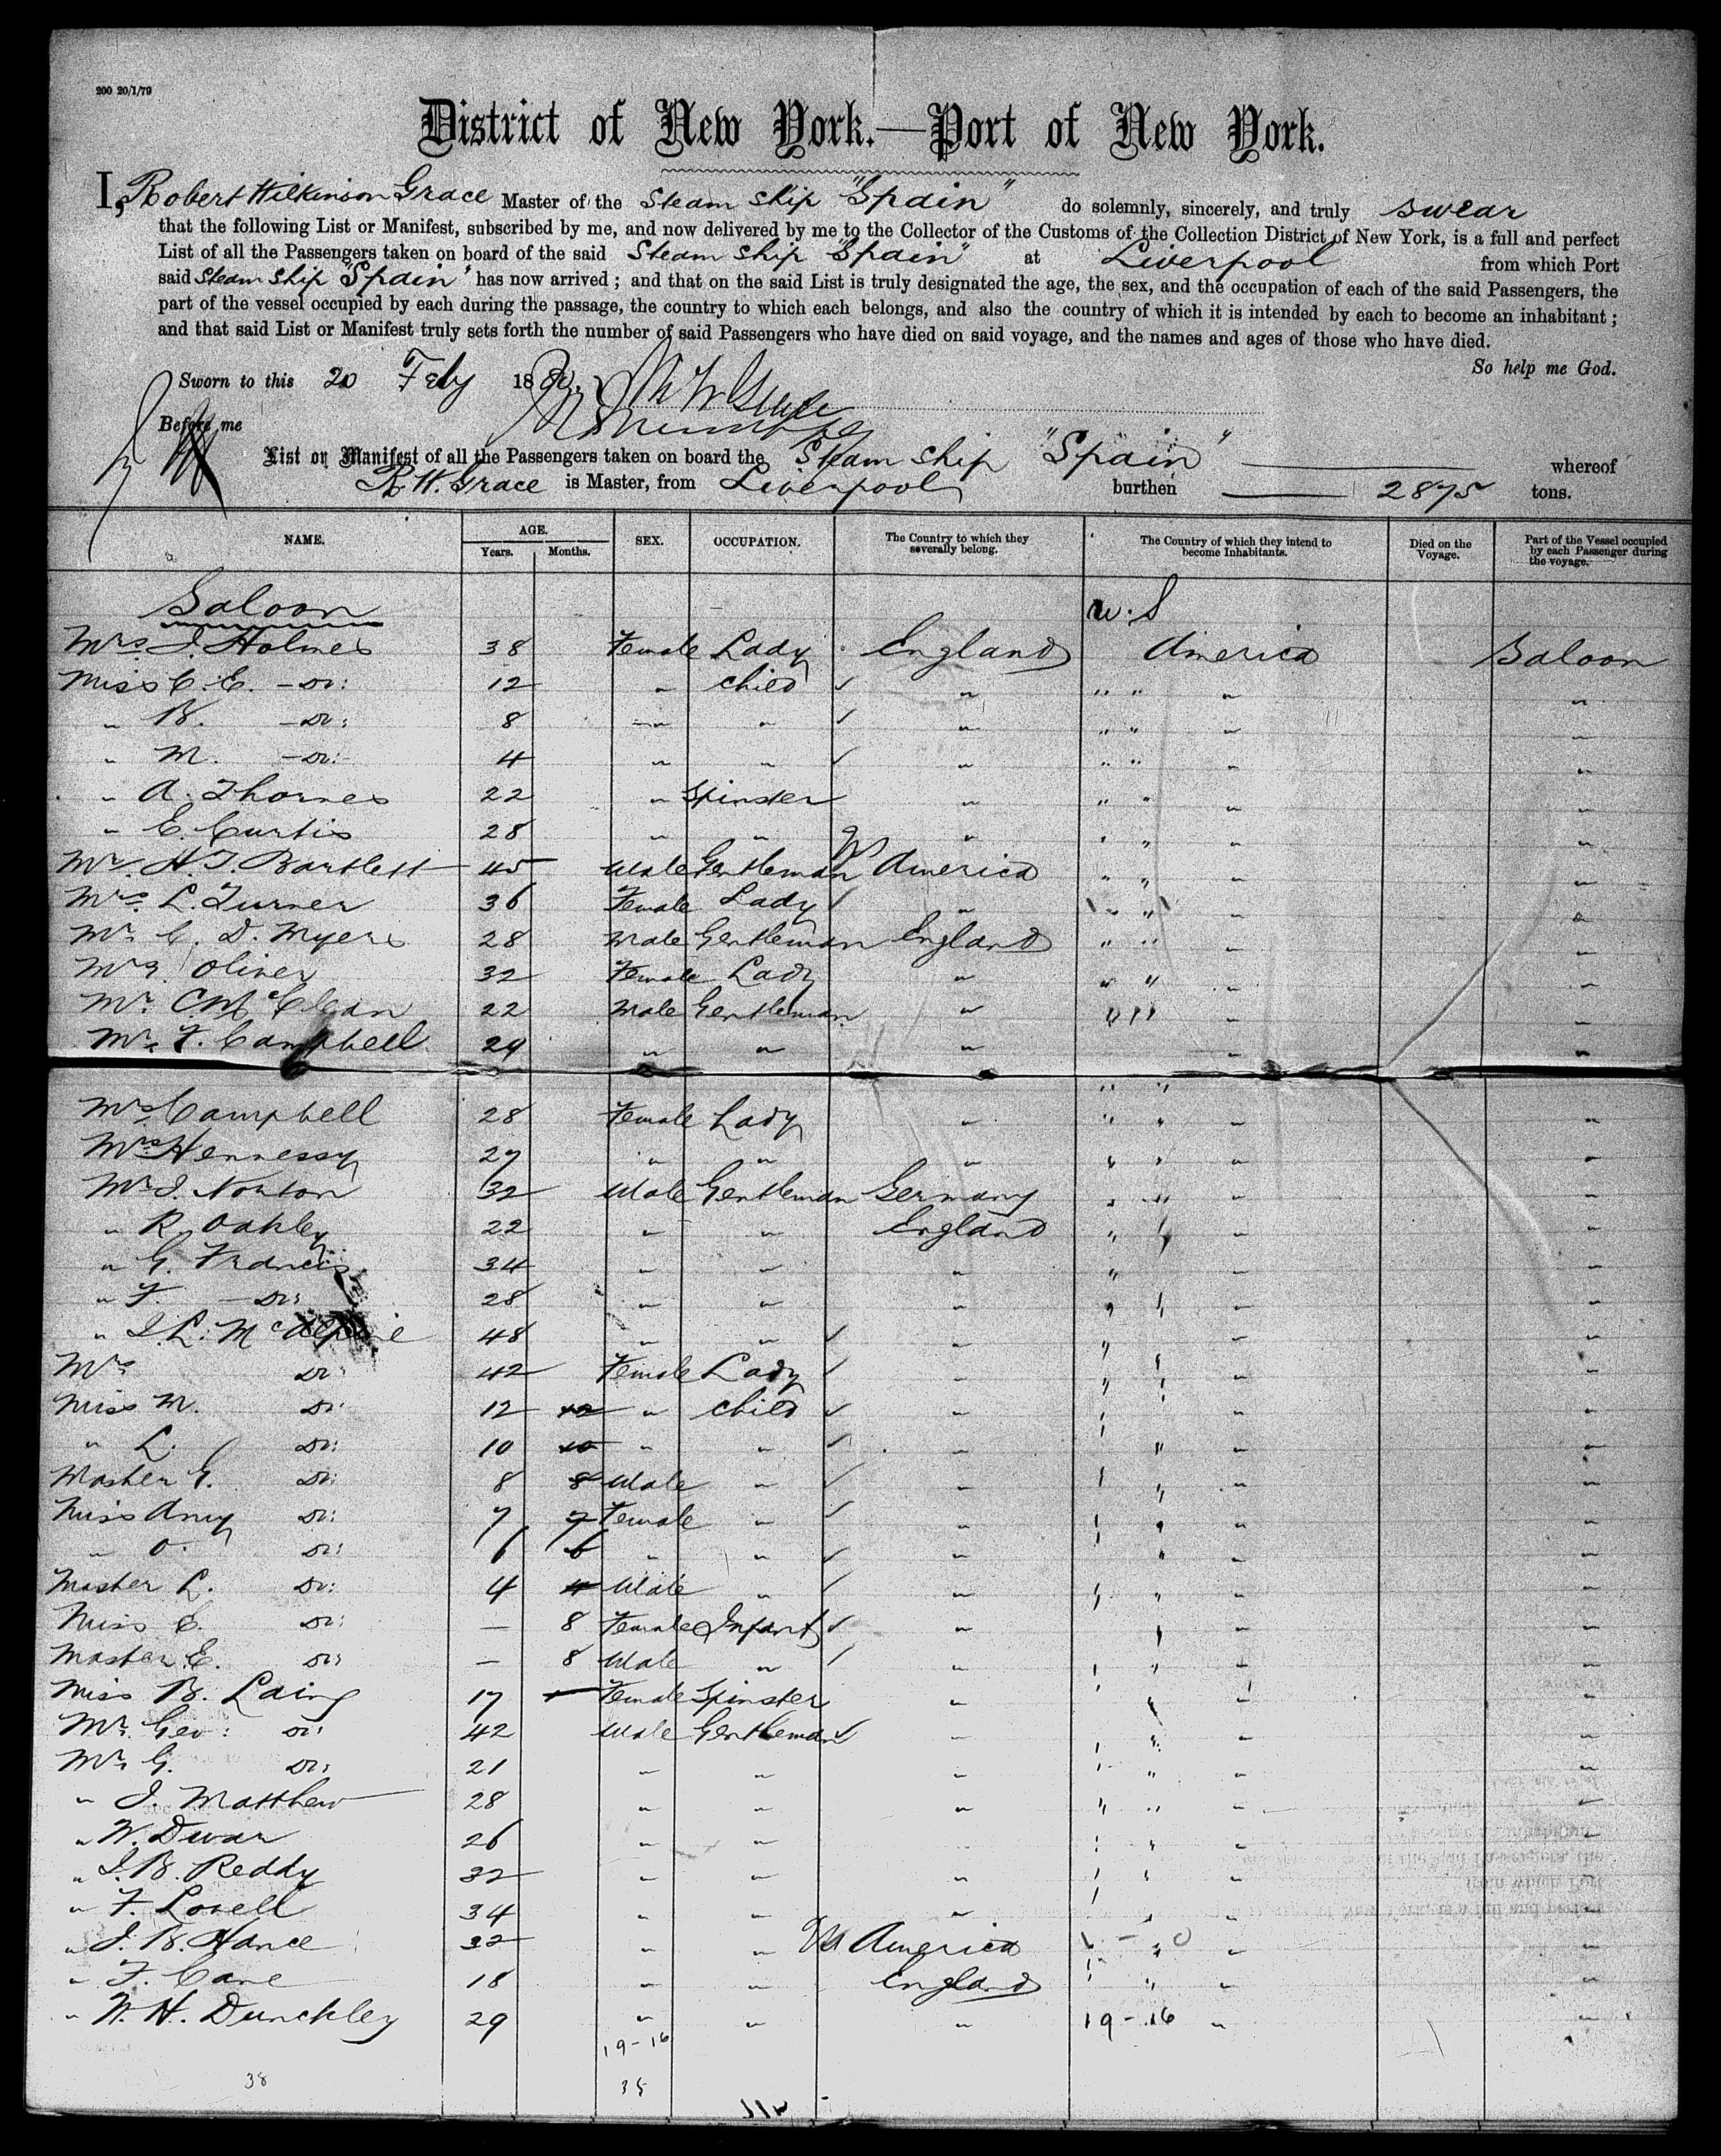 200 20/1/79
District of New York.—Port of New York.
I, Robert Wilkinson Grace Master of the Steam Ship "Spain" do solemnly, sincerely, and truly swear
that the following List or Manifest, subscribed by me, and now delivered by me to the Collector of the Customs of the Collection District of New York, is a full and perfect
List of all the Passengers taken on board of the said Steam Ship "Spain" at Liverpool from which Port
said Steam Ship "Spain" has now arrived; and that on the said List is truly designated the age, the sex, and the occupation of each of the said Passengers, the
part of the vessel occupied by each during the passage, the country to which each belongs, and also the country of which it is intended by each to become an inhabitant;
and that said List or Manifest truly sets forth the number of said Passengers who have died on said voyage, and the names and ages of those who have died.
So help me God.
Sworn to this 20 Feby 1880. R W Grace
Before me
List or Manifest of all the Passengers taken on board the Steam Ship "Spain" whereof
R. W. Grace is Master, from Liverpool burthen 2875 tons.
NAME. AGE. Years. Months. SEX. OCCUPATION. The Country to which they severally belong. The Country of which they intend to become Inhabitants. Died on the Voyage. Part of the Vessel occupied by each Passenger during the voyage.
Saloon U.S
Mrs. J. Holmes 38 Female Lady England America Saloon
Miss C. E. - Do: 12 " Child " " " " "
" B. - Do: 8 " " " " " " "
" M. - Do: 4 " " " " " " "
" A. Thornes 22 " Spinster " " " " "
" E. Curtis 28 " " " " " " "
Mr. H. T. Bartlett 45 Male Gentleman US America " " " "
Mrs. L. Turner 36 Female Lady " " " " "
Mr. C. D. Myers 28 Male Gentleman England " " " "
Mrs. Oliver 32 Female Lady " " " " "
Mr. C. McClean 22 Male Gentleman " " " " "
Mr. F. Campbell 29 " " " " "
Mrs. Campbell 28 Female Lady " " " " "
Mrs. Hennessy 27 " " " " " " "
Mr. J. Norton 32 Male Gentleman Germany " " " "
" R. Oakley 22 " " England " " " "
" G. Francis 34 " " " " " "
" F. - Do: 28 " " " " " " "
" J. L. McAlpine 48 " " " " " "
Mrs. Do: 42 Female Lady " " " " "
Miss M. Do: 12 12 " Child " " " "
" L. Do: 10 10 " " " " " "
Master G. Do: 8 8 Male " " " " " "
Miss Amy Do: 7 7 Female " " " " " "
" O. Do: 6 6 " " " " " "
Master L. Do: 4 4 Male " " " " " "
Miss E. Do: — 8 Female Infant " " " "
Master E. Do: — 8 Male " " " " " "
Miss B. Laing 17 Female Spinster " " " " "
Mr. Geo: Do: 42 Male Gentleman " " " " "
Mr. G. Do: 21 " " " " " " "
" J. Matthew 28 " " " " " " "
" W. Dewar 26 " " " " " "
" J. B. Reddy 32 " " " " " " "
" F. Lovell 34 " " " " " " "
" J. B. Hance 32 " " US America " " "
" F. Cane 18 " " England " " " "
" W. H. Dunckley 29 " " " 19-16 " "
19-16
38 35